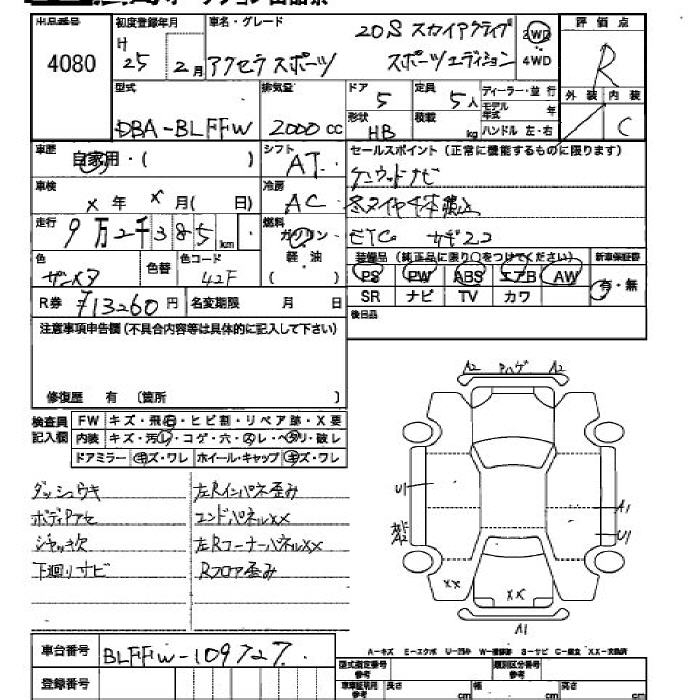 出品番号 初度登録年月 車名・グレード 20S スカイアクティブ 2WD 評価点
4080 H 25 2月 アクセラ スポーツ スポーツエディション 4WD R
型式 排気量 ドア 定員 ディーラー・並行 外装 内装
DBA-BLFFW 2000cc 5 5人 モデル年式 年
形状 積載 ハンドル 左・右 C
HB kg
車歴 自家用・( ) シフト AT セールスポイント(正常に機能するものに限ります)
車検 × 年 × 月( 日) 冷房 AC ケンウッドナビ
走行 9万2千385km 燃料 ガソリン
軽・油
( )
ETC
色 色替 色コード 装備品(純正品に限り○をつけてください) 新車保証書
42F PS PW ABS エアB AW 有・無
R券 ¥13260円 名変期限 月 日 SR ナビ TV カワ
注意事項申告欄(不具合内容等は具体的に記入して下さい) 後日品
修復歴 有 〔箇所 〕
検査員記入欄 FW キズ・飛石・ヒビ割・リペア跡・X要
内装 キズ・汚レ・コゲ・穴・スレ・ヘタリ・破レ
ドアミラー キズ・ワレ ホイール・キャップ キズ・ワレ
A2 ハゲ A2
ダッシュウキ 左Rインパネ歪み
ボディアセ エンドパネルXX
ジャッキ欠 左RコーナーパネルXX
下廻りサビ Rフロア歪み
U1 A1
A2 U1
XX XX
A1
車台番号 BLFFW-109727
A-キズ E-エクボ U-凹み W-補修跡 S-サビ C-腐食 XX-交換済
登録番号 型式指定番号 参考 類別区分番号 参考
車車証明用 参考 長さ cm 幅 cm 高さ cm